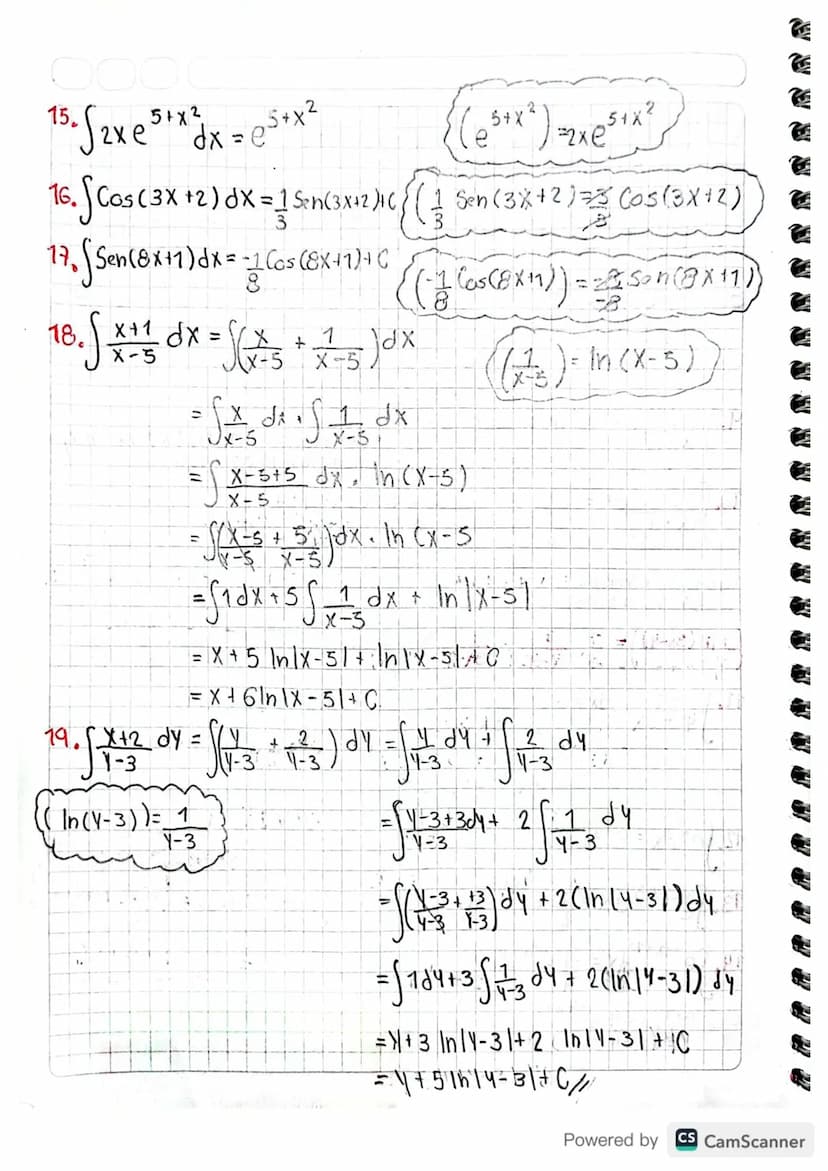 15. ∫2xe^(5+x²) dx = e^(5+x²) (e^(5+x²)) = 2xe^(5+x²)
16. ∫Cos(3X+2) dX = 1/3 Sen(3X+2)+C (1/3 Sen(3X+2)) = 3/3 Cos(3X+2)
17. ∫Sen(8X+1)dx = -1/8 Cos(8X+1)+C (-1/8 Cos(8X+1)) = -8/-8 Sen(8X+1)
18. ∫ (X+1)/(X-5) dX = ∫(X/(X-5) + 1/(X-5))dX (1/(X-5)) = ln(X-5)
= ∫ X/(X-5) dx + ∫ 1/(X-5) dX
= ∫ (X-5+5)/(X-5) dX + ln(X-5)
= ∫((X-5)/(X-5) + 5/(X-5))dX + ln(X-5
= ∫1dX+5∫ 1/(X-5) dX + ln|X-5|
= X+5 ln|X-5|+ ln|X-5|+C
= X+6ln|X-5|+C
19. ∫ (X+2)/(Y-3) dY = ∫(Y/(Y-3) + 2/(Y-3)) dY = ∫ Y/(Y-3) dY + ∫ 2/(Y-3) dY
(ln(Y-3)) = 1/(Y-3)
= ∫ (Y-3+3)/(Y-3) dY + 2∫ 1/(Y-3) dY
= ∫((Y-3)/(Y-3) + +3/(Y-3)) dY + 2(ln|Y-3|)dY
= ∫1dY+3∫ 1/(Y-3) dY + 2(ln|Y-3|) dY
= Y+3 ln|Y-3|+2 ln|Y-3|+C
= Y+5ln|Y-3|+C//
Powered by CS CamScanner